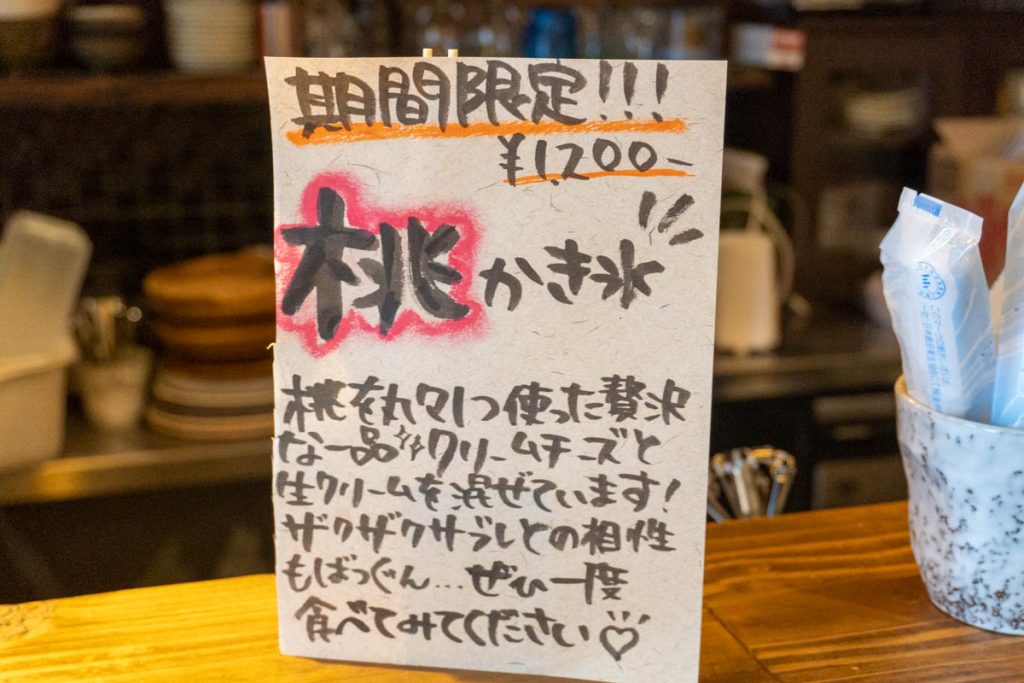 期間限定!!!
¥1,200-
桃かき氷
桃を丸々1つ使った贅沢
な一品✨クリームチーズと
生クリームを混ぜています!
ザクザクサブレとの相性
もばつぐん…ぜひ一度
食べてみてください♡